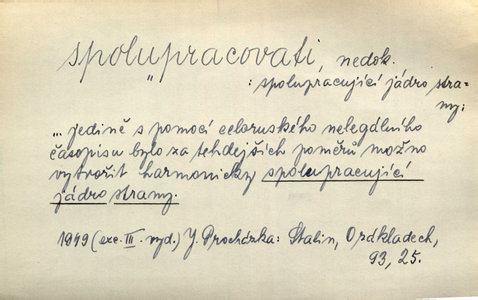 spolupracovati, nedok.
: spolupracující jádro stra-
ny:
... jedině s pomocí celoruského nelegálního
časopisu bylo za tehdejších poměrů možno
vytvořit harmonicky spolupracující
jádro strany.
1949 (exc. III. vyd.) J. Procházka: Stalin, O zákldech,
93, 25.